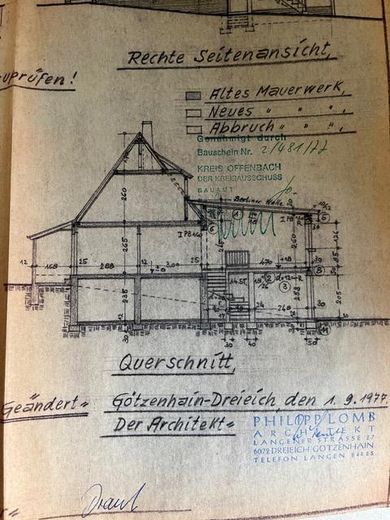 Rechte Seitenansicht,
uprüfen!
Altes Mauerwerk,
Neues " " ,
Abbruch " " ,
Genehmigt durch
Bauschein Nr. 2/481/77
KREIS OFFENBACH
DER KREISAUSSCHUSS
BAUAMT
Berliner Welle
260
265
235
12 168 25 288 12 300 25
470
Querschnitt,
Geändert" Götzenhain-Dreieich, den 1. 9. 1977.
Der Architekt"
PHILIPP LOMB
ARCHITEKT
LANGENER STRASSE 27
6072 DREIEICH GÖTZENHAIN
TELEFON LANGEN